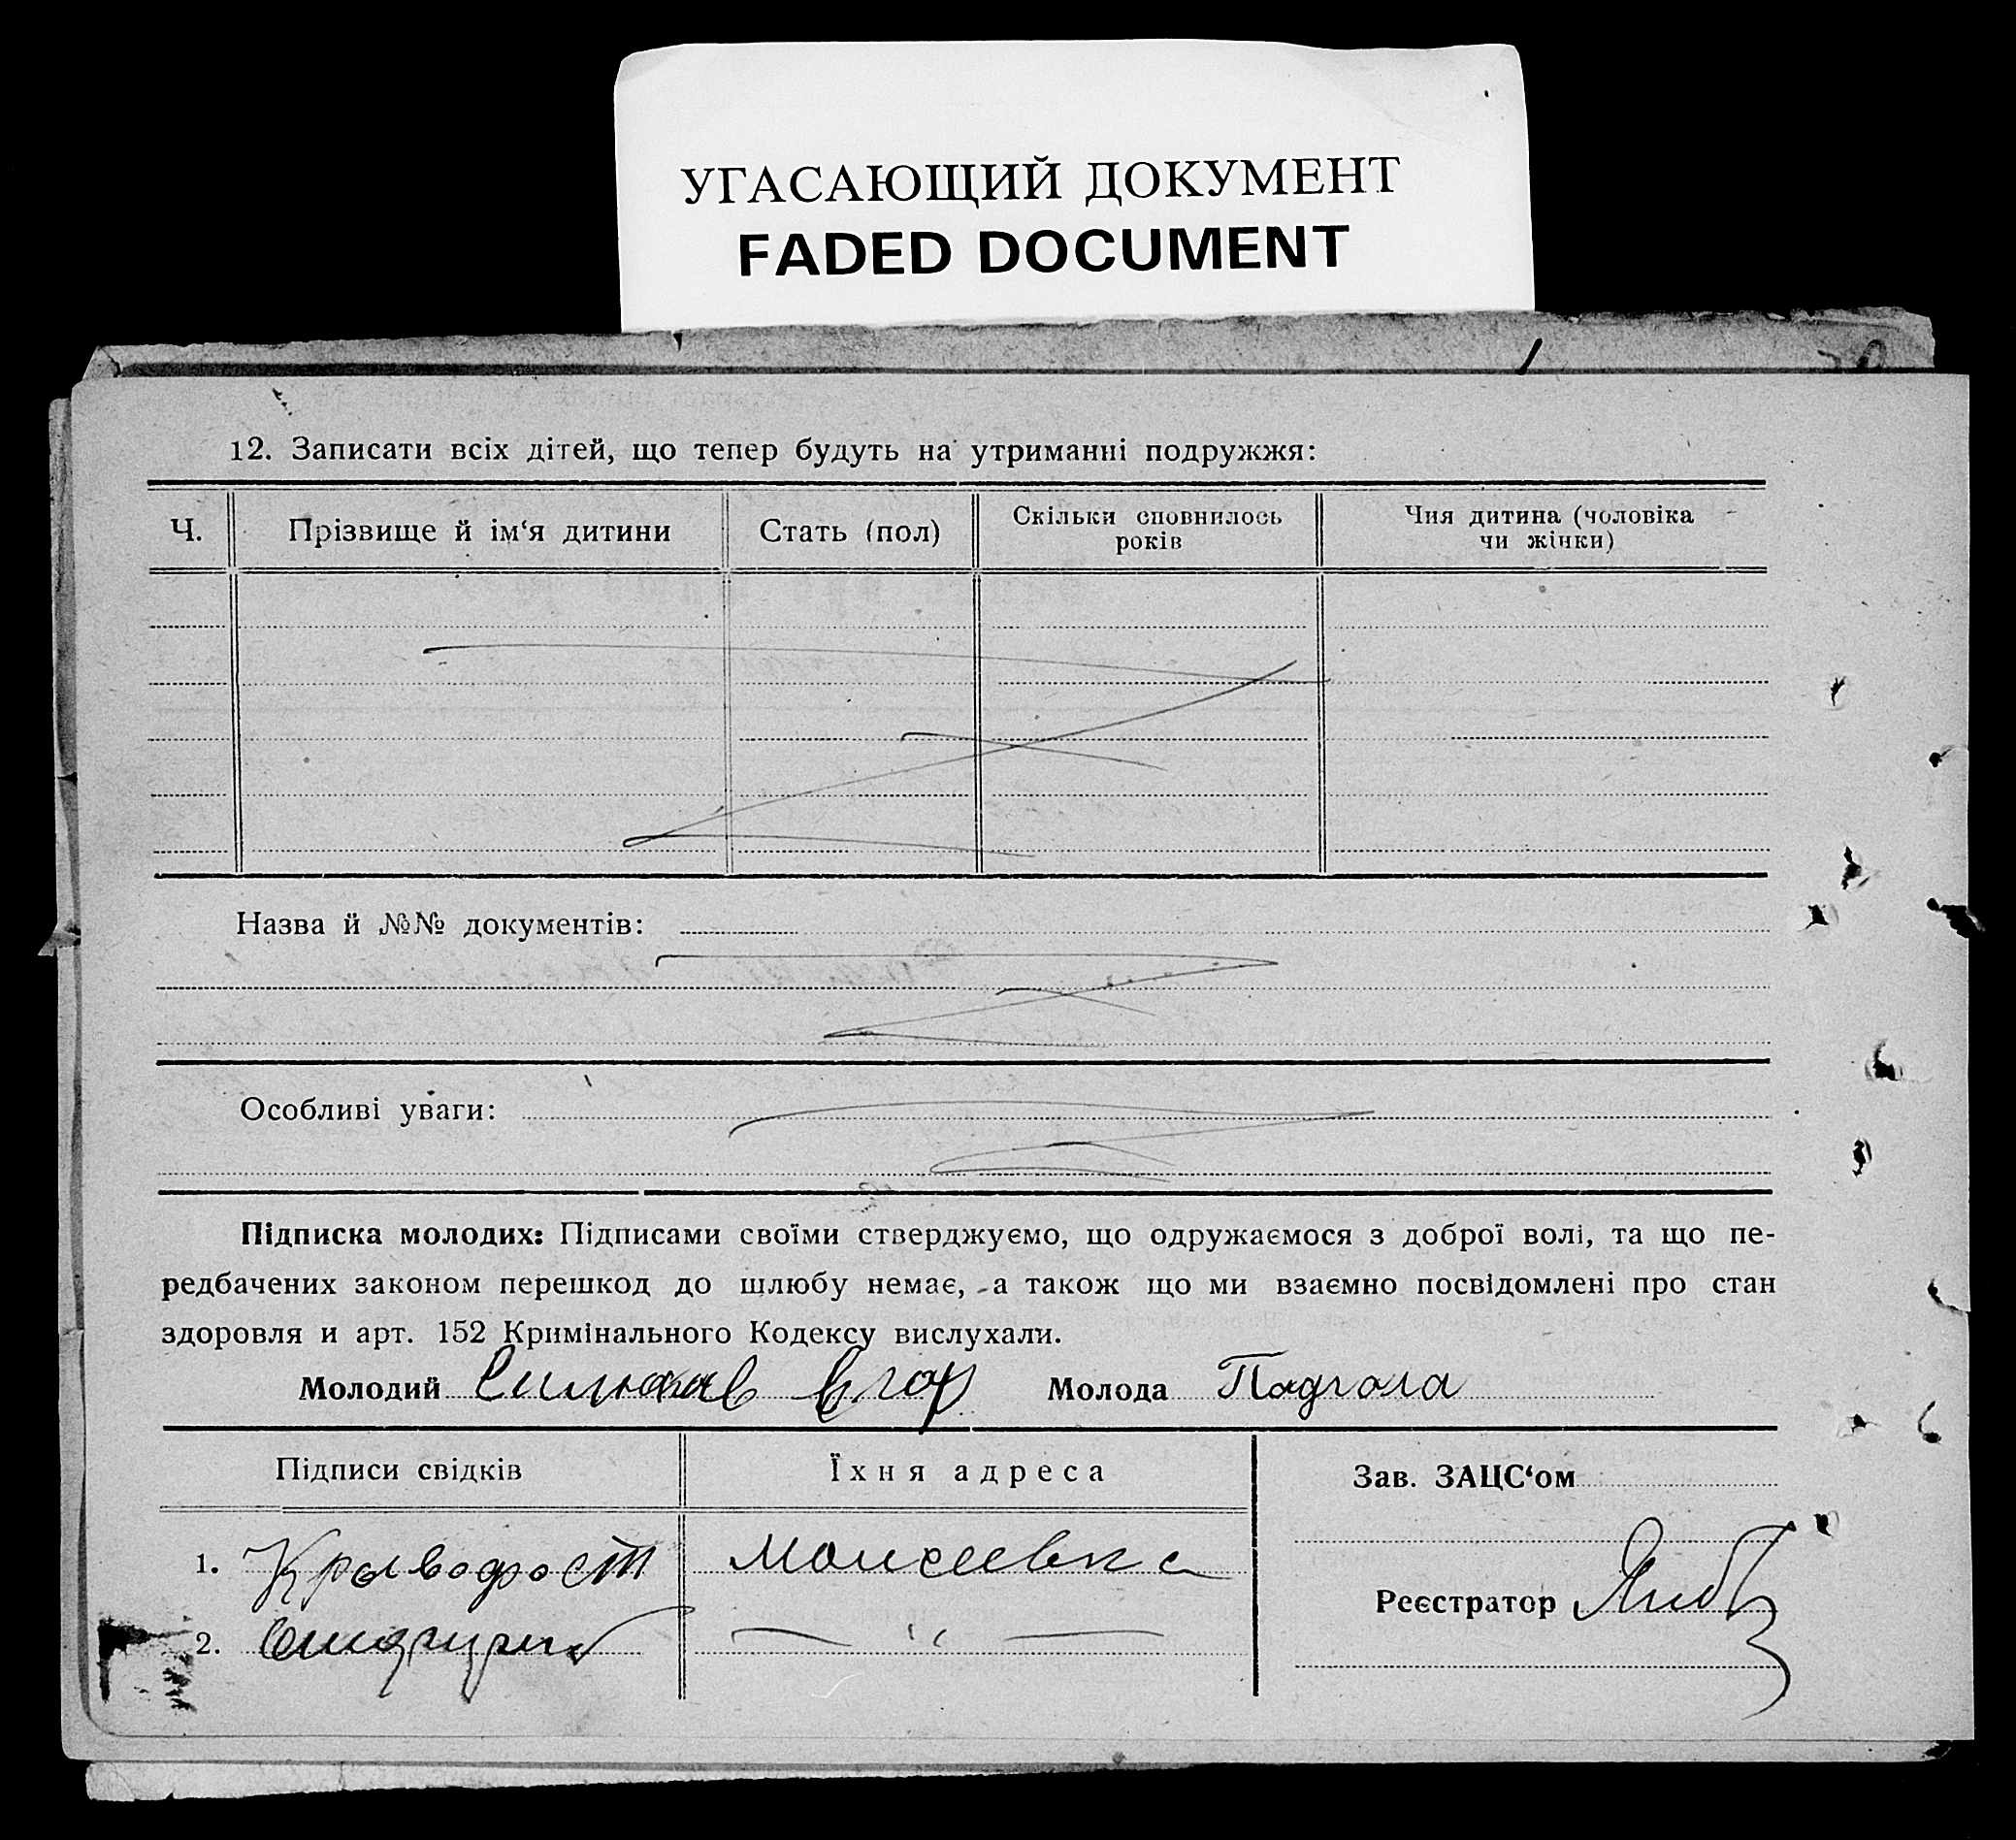 УГАСАЮЩИЙ ДОКУМЕНТ
FADED DOCUMENT
12. Записати всіх дітей, що тепер будуть на утриманні подружжя:
Ч. Прізвище й ім‘я дитини Стать (пол) Скільки сповнилось років Чия дитина (чоловіка чи жінки)
Назва й №№ документів:
Особливі уваги:
Підписка молодих: Підписами своїми стверджуємо, що одружаємося з доброї волі, та що пе-
редбачених законом перешкод до шлюбу немає, а також що ми взаємно посвідомлені про стан
здоровля и арт. 152 Кримінального Кодексу вислухали.
Молодий Егор Молода Падгола
Підписи свідків Їхня адреса Зав. ЗАЦС‘ом
1. Моисеевка
Реєстратор
2. — " —